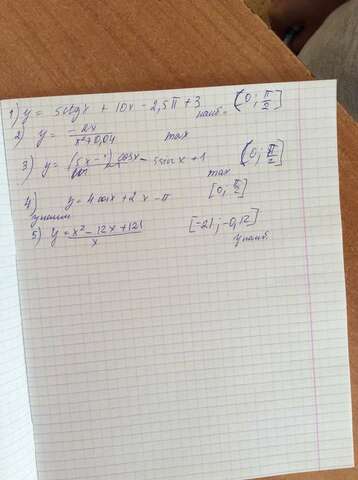 1) y = 5ctgx + 10x - 2,5π + 3 наиб. (0; π/2]
2) y = -2x/x²+0,04 max
3) y = (5x - ) cosx - 5sinx + 1 max (0; π/2]
4) y = 4cosx + 2x - π [0, π/2]
5) y = x² - 12x + 121/x [-21; -0,12]
у наиб.